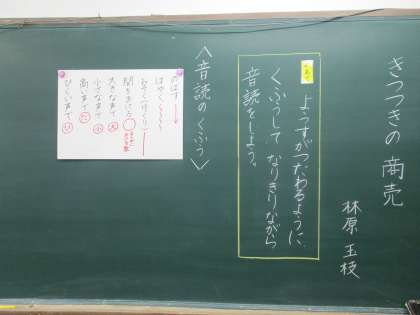 きつつきの商売
林原 玉枝
めあて
ようすがつたわるように、
くふうして なりきりながら
音読をしよう。
〈音読のくふう〉
のばす
はやく
おそく(ゆっくり)
間をあける
大きな声で 大
小さな声で 小
高い声で
ひくい声で